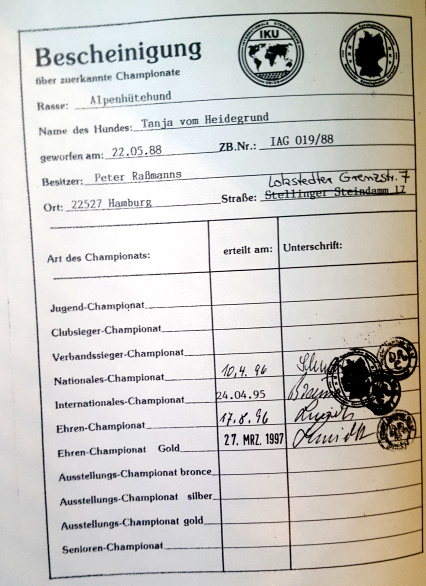 Bescheinigung
über zuerkannte Championate
IKU
Rasse: Alpenhütehund
Name des Hundes: Tanja vom Heidegrund
geworfen am: 22.05.88 ZB.Nr.: IAG 019/88
Besitzer: Peter Raßmanns
Lokstedter Grenzstr. 7
Ort: 22527 Hamburg Straße: Stellinger Steindamm 17
Art des Championats: erteilt am: Unterschrift:
Jugend-Championat
Clubsieger-Championat
Verbandssieger-Championat
Nationales-Championat 10.4.96
Internationales-Championat 24.04.95
Ehren-Championat 17.8.96
Ehren-Championat Gold 27. MRZ. 1997
Ausstellungs-Championat bronce
Ausstellungs-Championat silber
Ausstellungs-Championat gold
Senioren-Championat